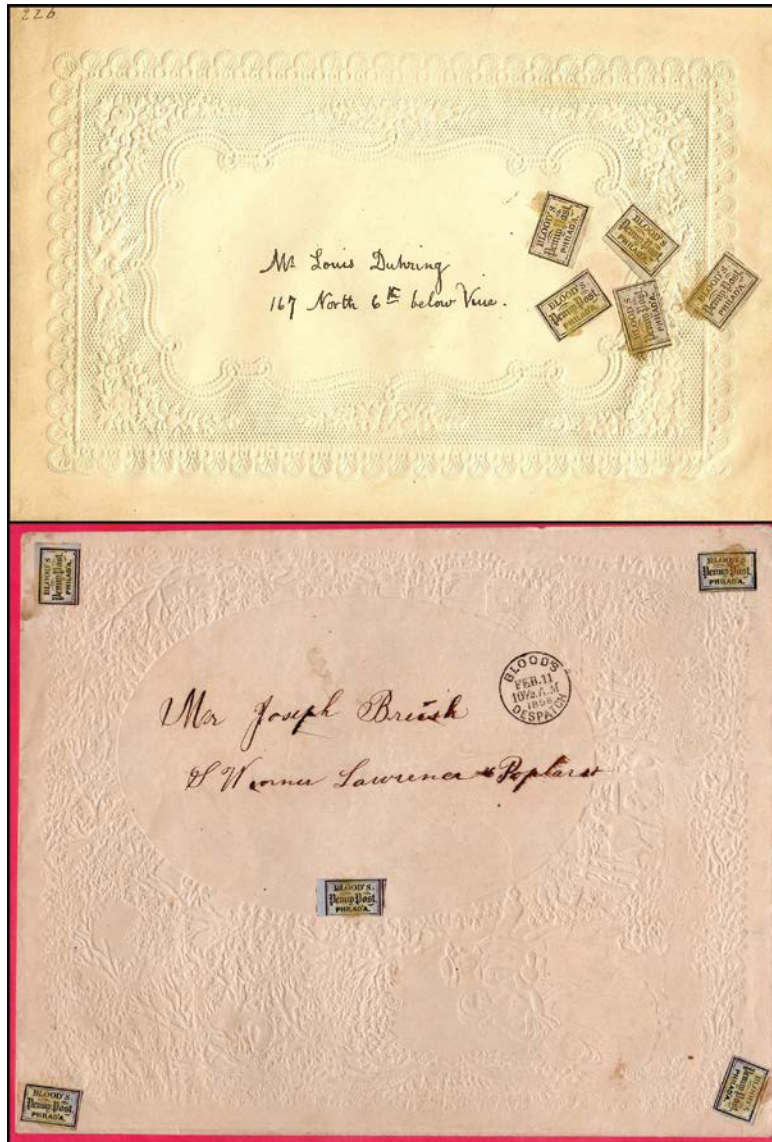 226
Mr Louis Duhring
167 North 6th below Vine.
BLOOD'S
Penny Post.
PHILAD'A.
BLOOD'S
Penny Post.
PHILAD'A.
BLOOD'S
Penny Post.
PHILAD'A.
BLOOD'S
Penny Post.
PHILAD'A.
BLOOD'S
Penny Post.
PHILAD'A.
BLOOD'S
Penny Post.
PHILAD'A.
BLOOD'S
Penny Post.
PHILAD'A.
BLOOD'S
FEB. 11
10½ A.M
DESPATCH
Mr Joseph
S W corner Lawrence & Poplar st
BLOOD'S
Penny Post.
PHILAD'A.
BLOOD'S
Penny Post.
PHILAD'A.
BLOOD'S
Penny Post.
PHILAD'A.